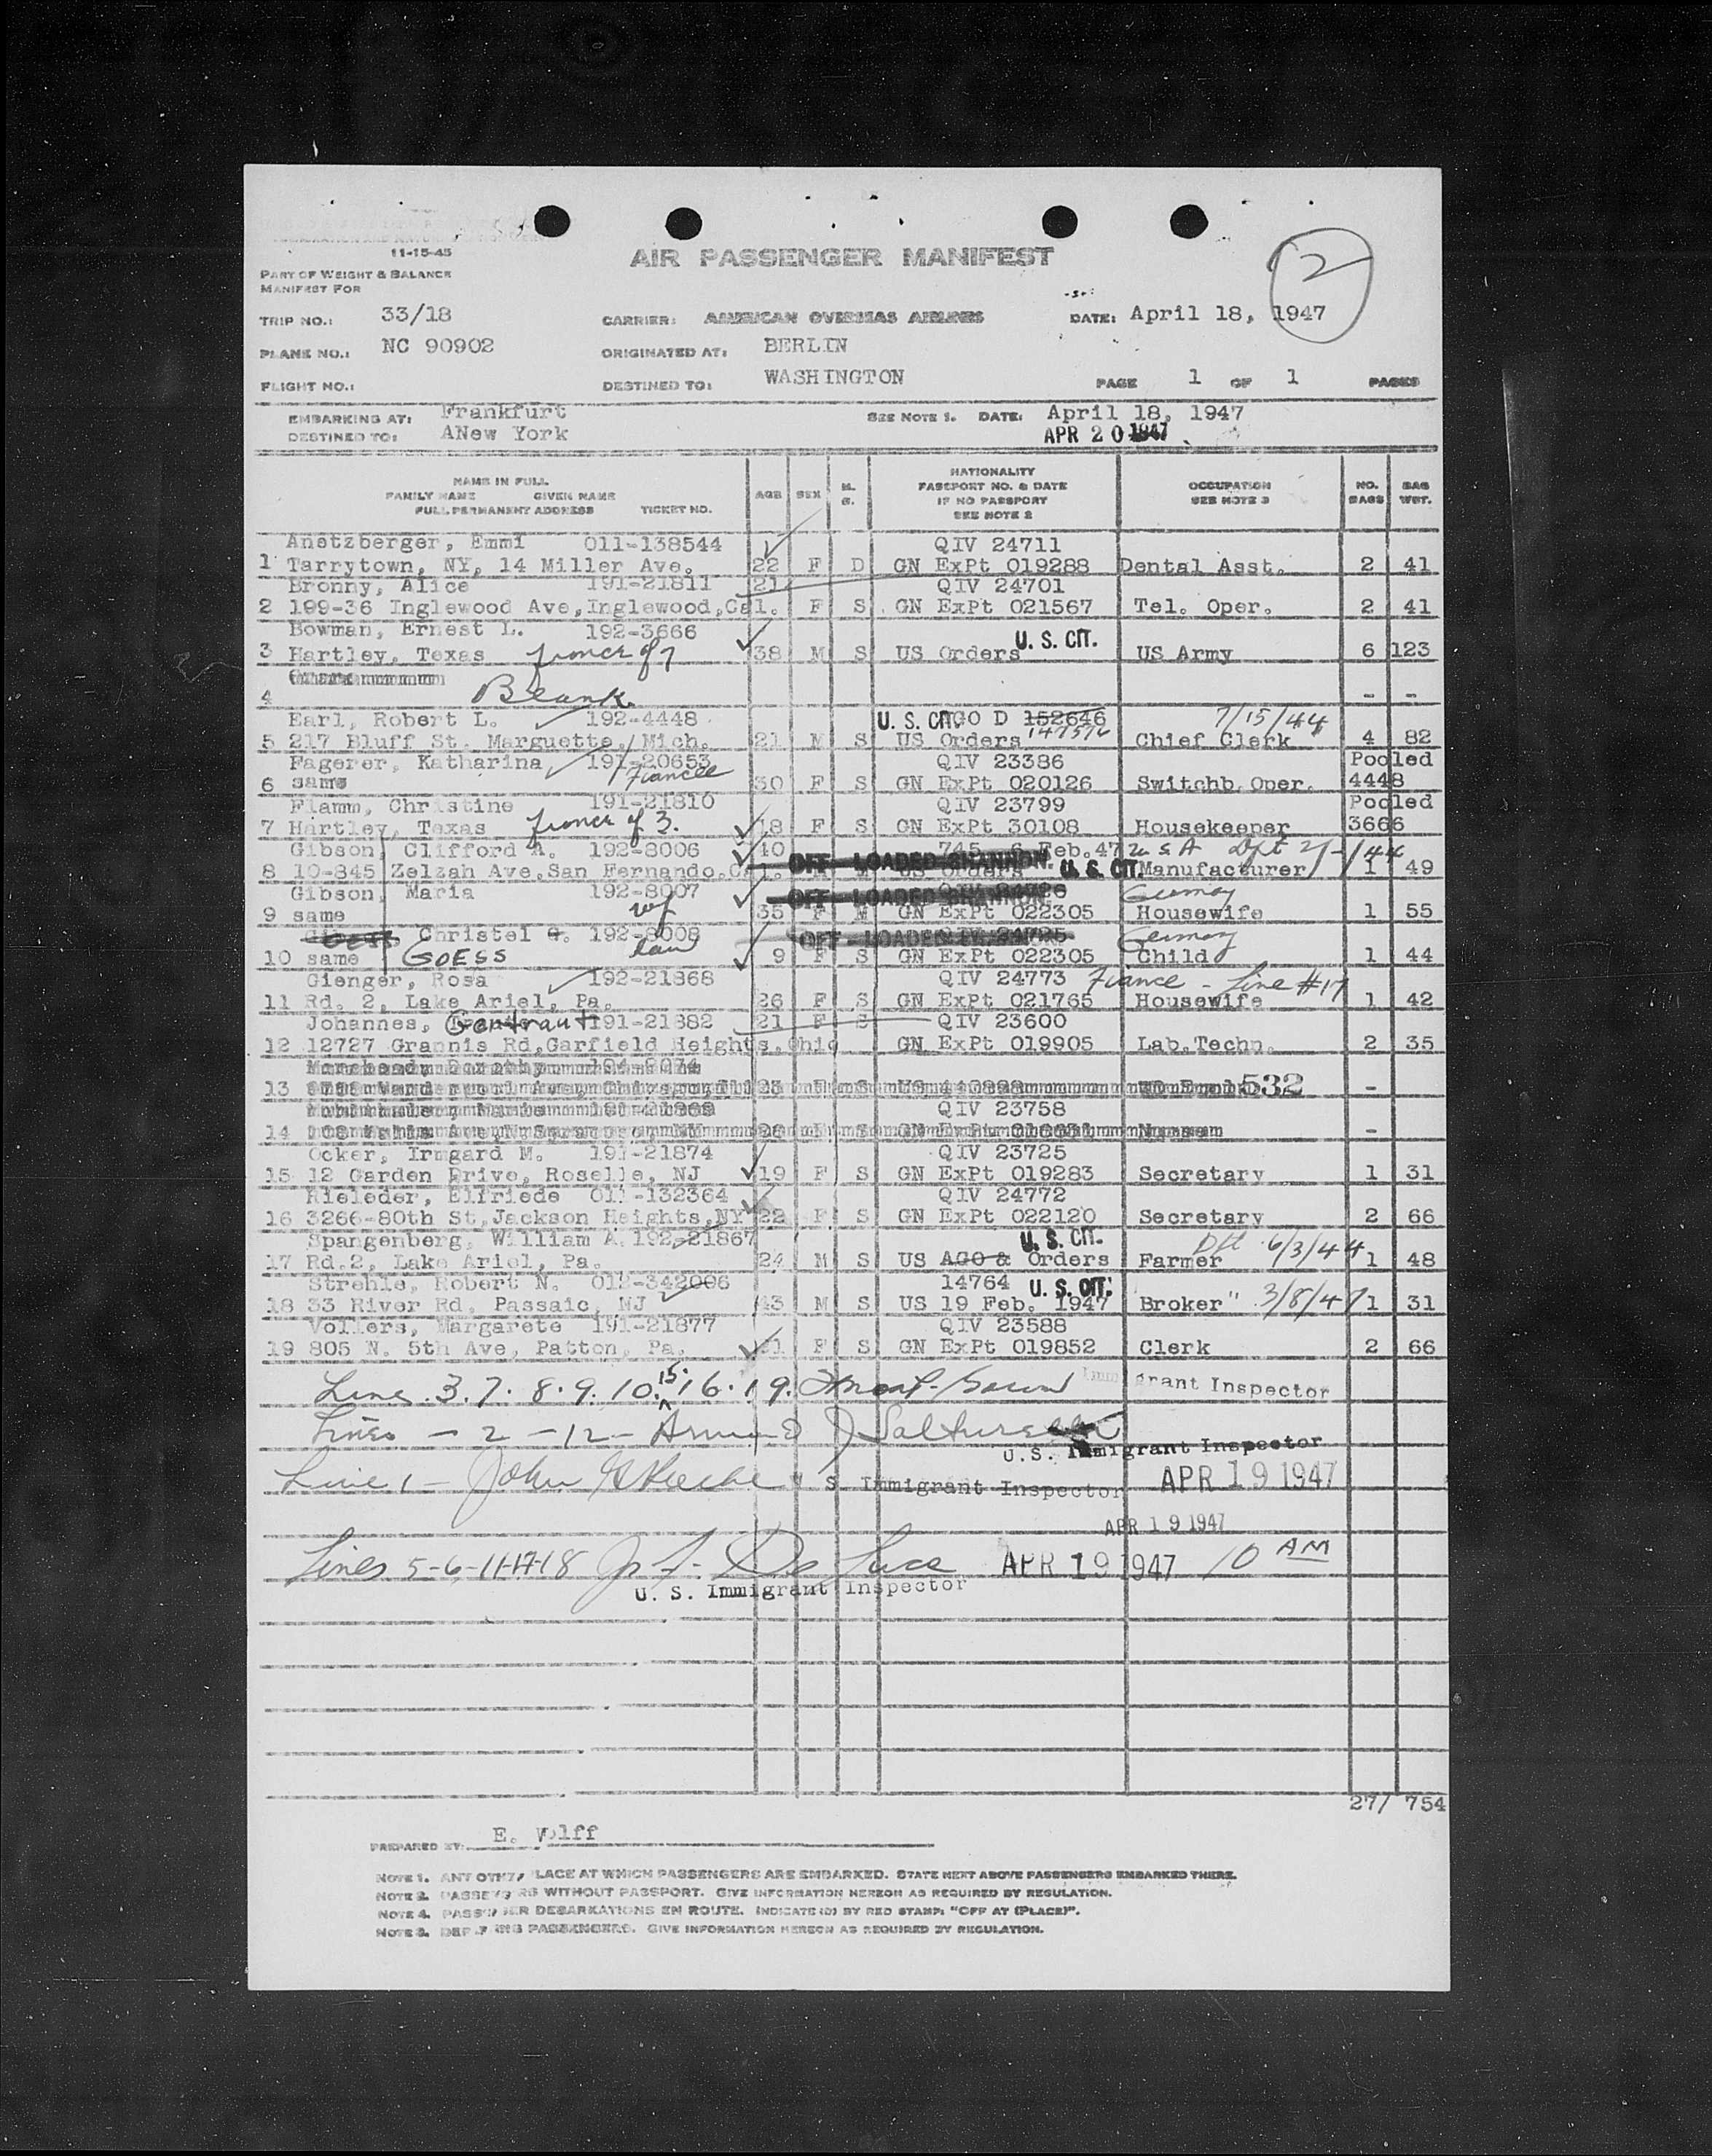 11-15-45
AIR PASSENGER MANIFEST
2
PART OF WEIGHT & BALANCE
MANIFEST FOR
TRIP NO.: 33/18 CARRIER: AMERICAN OVERSEAS AIRLINES DATE: April 18, 1947
PLANE NO.: NC 90902 ORIGINATED AT: BERLIN
FLIGHT NO.: DESTINED TO: WASHINGTON PAGE 1 OF 1 PAGES
EMBARKING AT: Frankfurt SEE NOTE 1. DATE: April 18, 1947
DESTINED TO: ANew York APR 20 1947
NAME IN FULL
FAMILY NAME GIVEN NAME
FULL PERMANENT ADDRESS TICKET NO.
AGE SEX M. S.
NATIONALITY
PASSPORT NO. & DATE
IF NO PASSPORT
SEE NOTE 2
OCCUPATION
SEE NOTE 3
NO. BAGS
BAG WGT.
Anetzberger, Emmi 011-138544 QIV 24711
1 Tarrytown, NY, 14 Miller Ave. 22 F D GN ExPt 019288 Dental Asst. 2 41
Bronny, Alice 191-21811 21 QIV 24701
2 199-36 Inglewood Ave,Inglewood,Cal. F S GN ExPt 021567 Tel. Oper. 2 41
Bowman, Ernest L. 192-3666 U. S. CIT.
3 Hartley, Texas 38 M S US Orders US Army 6 123
4 Blank - -
Earl, Robert L. 192-4448 U. S. CIT. AGO D 152646 7/15/44
5 217 Bluff St. Marguette, Mich. 21 M S US Orders 147576 Chief Clerk 4 82
Fagerer, Katharina 191-20653 QIV 23386 Pooled
6 same Fiancee 30 F S GN ExPt 020126 Switchb.Oper. 4448
Flamm, Christine 191-21810 QIV 23799 Pooled
7 Hartley, Texas 18 F S GN ExPt 30108 Housekeeper 3666
Gibson, Clifford A. 192-8006 40 745 6 Feb.47 USA
OFF - LOADED SHANNON.
8 10-845 Zelzah Ave.San Fernando.Cal. US Orders U. S. CIT. Manufacturer 1 49
Gibson, Maria 192-8007 OFF - LOADED SHANNON. Germany
9 same wf 35 F M GN ExPt 022305 Housewife 1 55
Christel G. 192-8008 OFF - LOADED Germany
10 same GOESS 9 F S GN ExPt 022305 Child 1 44
Gienger, Rosa 192-21868 QIV 24773 Fiance - Line #17
11 Rd. 2, Lake Ariel, Pa. 26 F S GN ExPt 021765 Housewife 1 42
Johannes, Gertraut 191-21882 21 F S QIV 23600
12 12727 Grannis Rd,Garfield Heights,Ohio GN ExPt 019905 Lab.Techn. 2 35
13 532 -
QIV 23758
14 -
Ocker, Irmgard M. 191-21874 QIV 23725
15 12 Garden Drive, Roselle, NJ 19 F S GN ExPt 019283 Secretary 1 31
Rieleder, Elfriede 011-132364 QIV 24772
16 3266-80th St,Jackson Heights,NY 22 F S GN ExPt 022120 Secretary 2 66
Spangenberg, William A. 192-21867 U. S. CIT. 6/3/44
17 Rd.2, Lake Ariel, Pa. 24 M S US AGO & Orders Farmer 1 48
Strehle, Robert N. 012-342006 14764 U. S. CIT.
18 33 River Rd, Passaic, NJ 43 M S US 19 Feb. 1947 Broker " 3/8/47 1 31
Vollers, Margarete 191-21877 QIV 23588
19 805 N. 5th Ave, Patton, Pa. 31 F S GN ExPt 019852 Clerk 2 66
Lines 3.7.8.9.10.15.16.19. Immigrant Inspector
Lines - 2 - 12 -
U.S. Immigrant Inspector
Line 1 - John U S Immigrant Inspector APR 19 1947
APR 19 1947
Lines 5-6-11-17-18 De Luca APR 19 1947 10 AM
U. S. Immigrant Inspector
27/ 754
PREPARED BY: E. Wolff
NOTE 1. ANY OTHER PLACE AT WHICH PASSENGERS ARE EMBARKED. STATE NEXT ABOVE PASSENGERS EMBARKED THERE.
NOTE 2. PASSENGERS WITHOUT PASSPORT. GIVE INFORMATION HEREON AS REQUIRED BY REGULATION.
NOTE 4. PASSENGER DEBARKATIONS EN ROUTE. INDICATE (D) BY RED STAMP: "OFF AT (PLACE)".
NOTE 3. DEPORTING PASSENGERS. GIVE INFORMATION HEREON AS REQUIRED BY REGULATION.